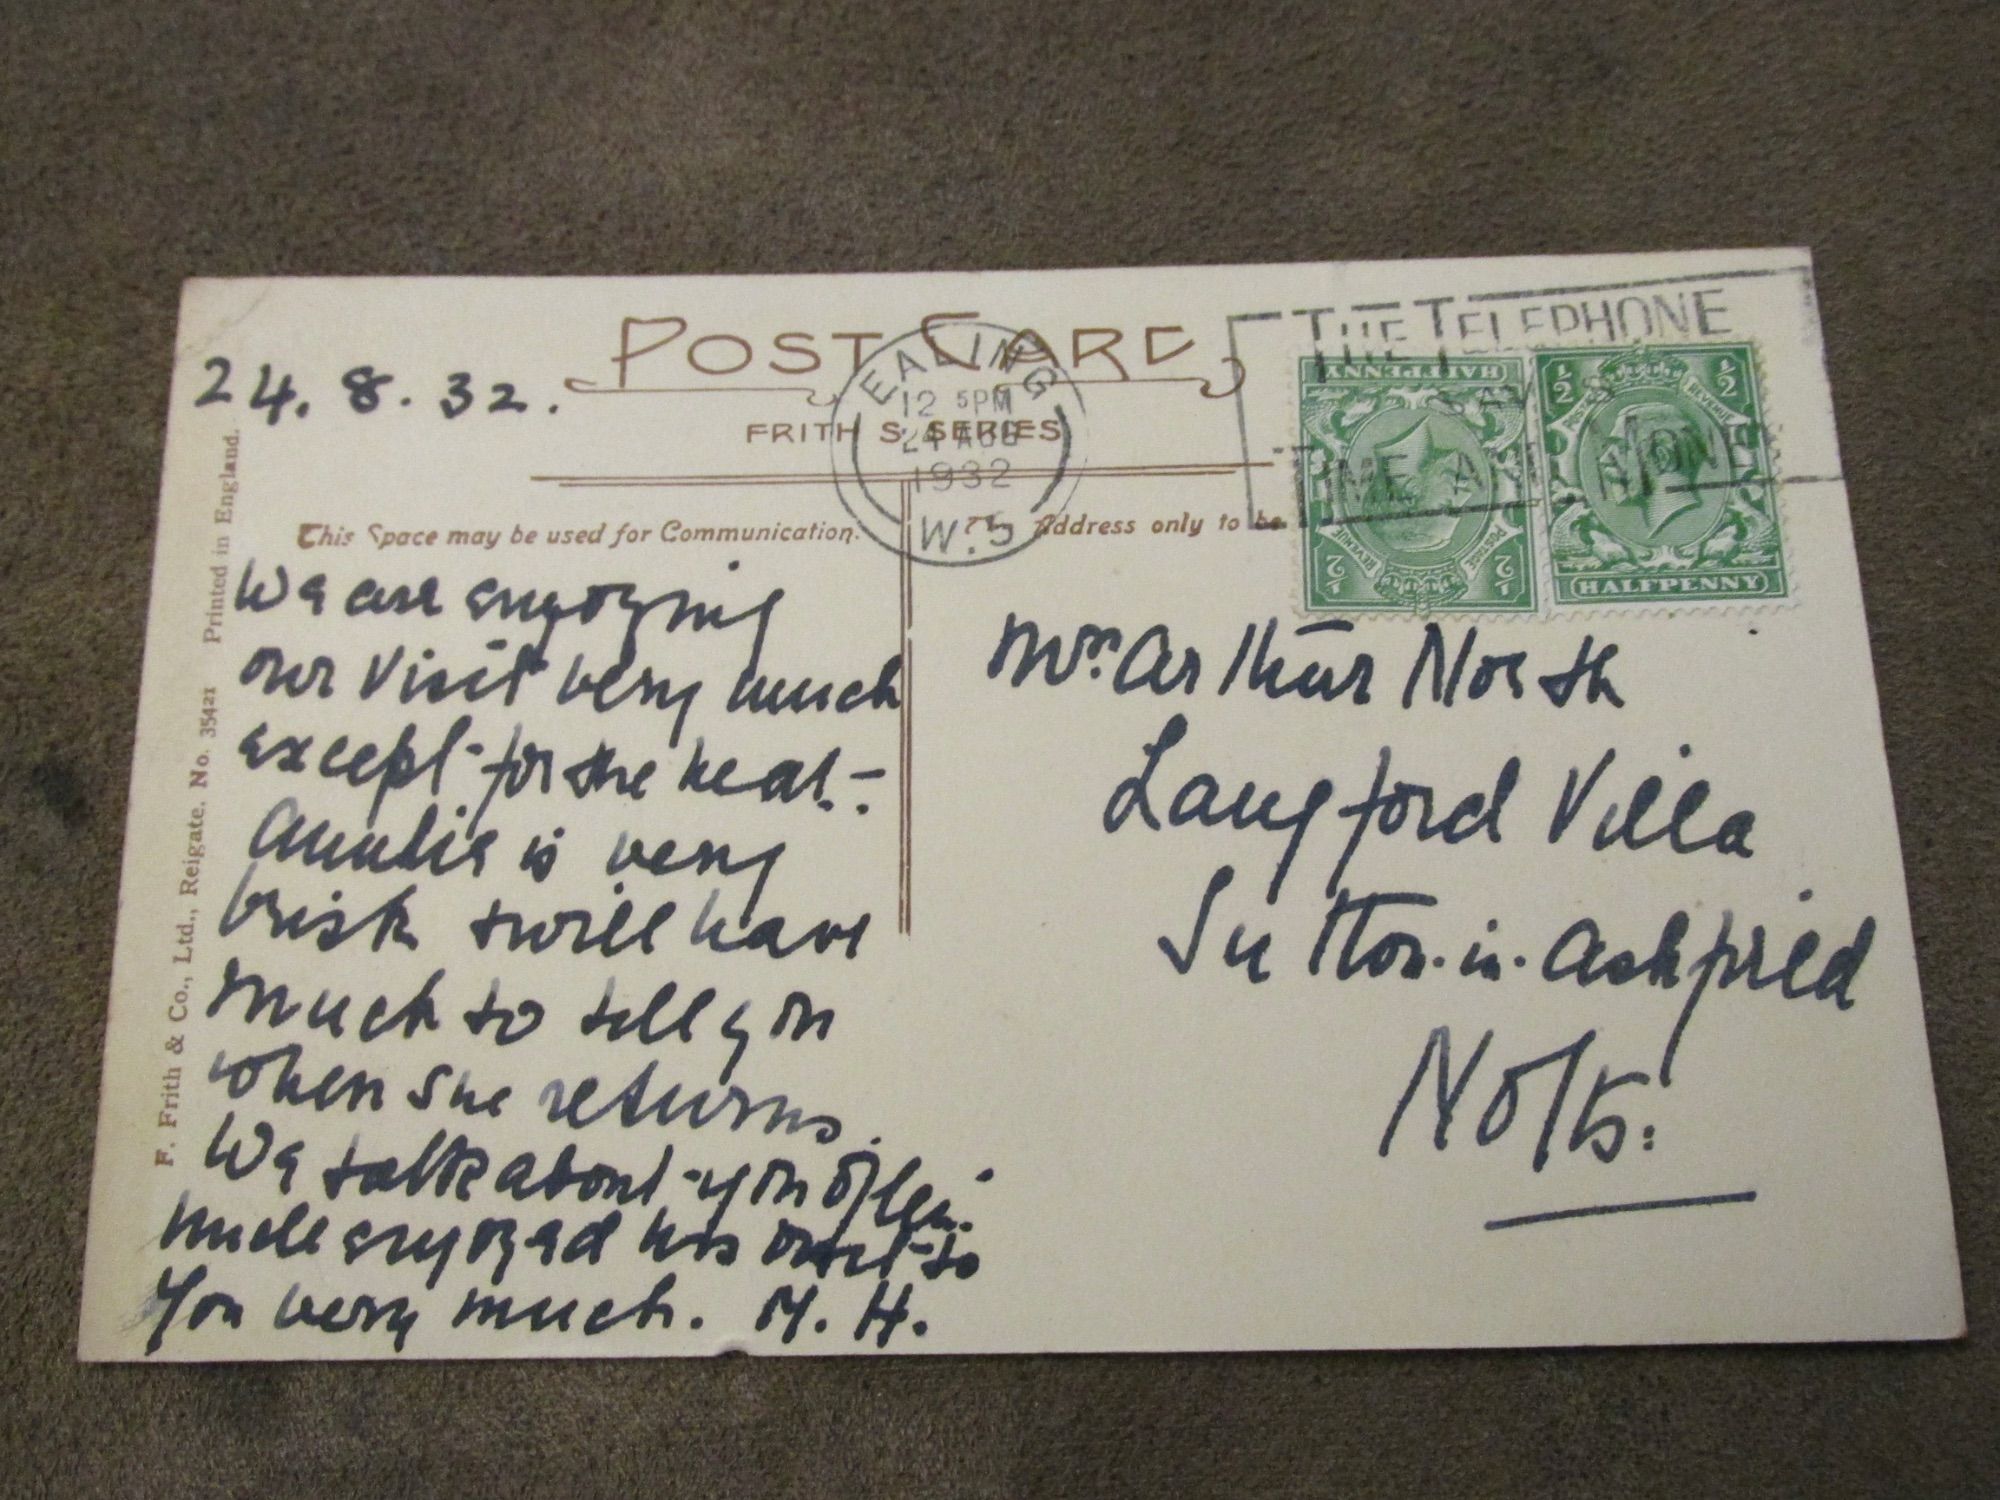 POST CARD
FRITH'S SERIES
24.8.32.
This Space may be used for Communication.
Address only to be
We are enjoying
our visit very much
except for the heat. –
Auntie is very
brisk & will have
much to tell you
when she returns.
We talk about you often.
Uncle enjoyed his visit to
You very much. M. H.
F. Frith & Co., Ltd., Reigate. No. 35421 Printed in England.
EALING
12 5PM
24 AUG
1932
W.5
THE TELEPHONE
SAVES
TIME AND MONEY
HALFPENNY
POSTAGE
REVENUE
½ ½
½ ½
POSTAGE
REVENUE
HALFPENNY
Mrs. Arthur North
Langford Villa
Sutton-in-Ashfield
Notts: